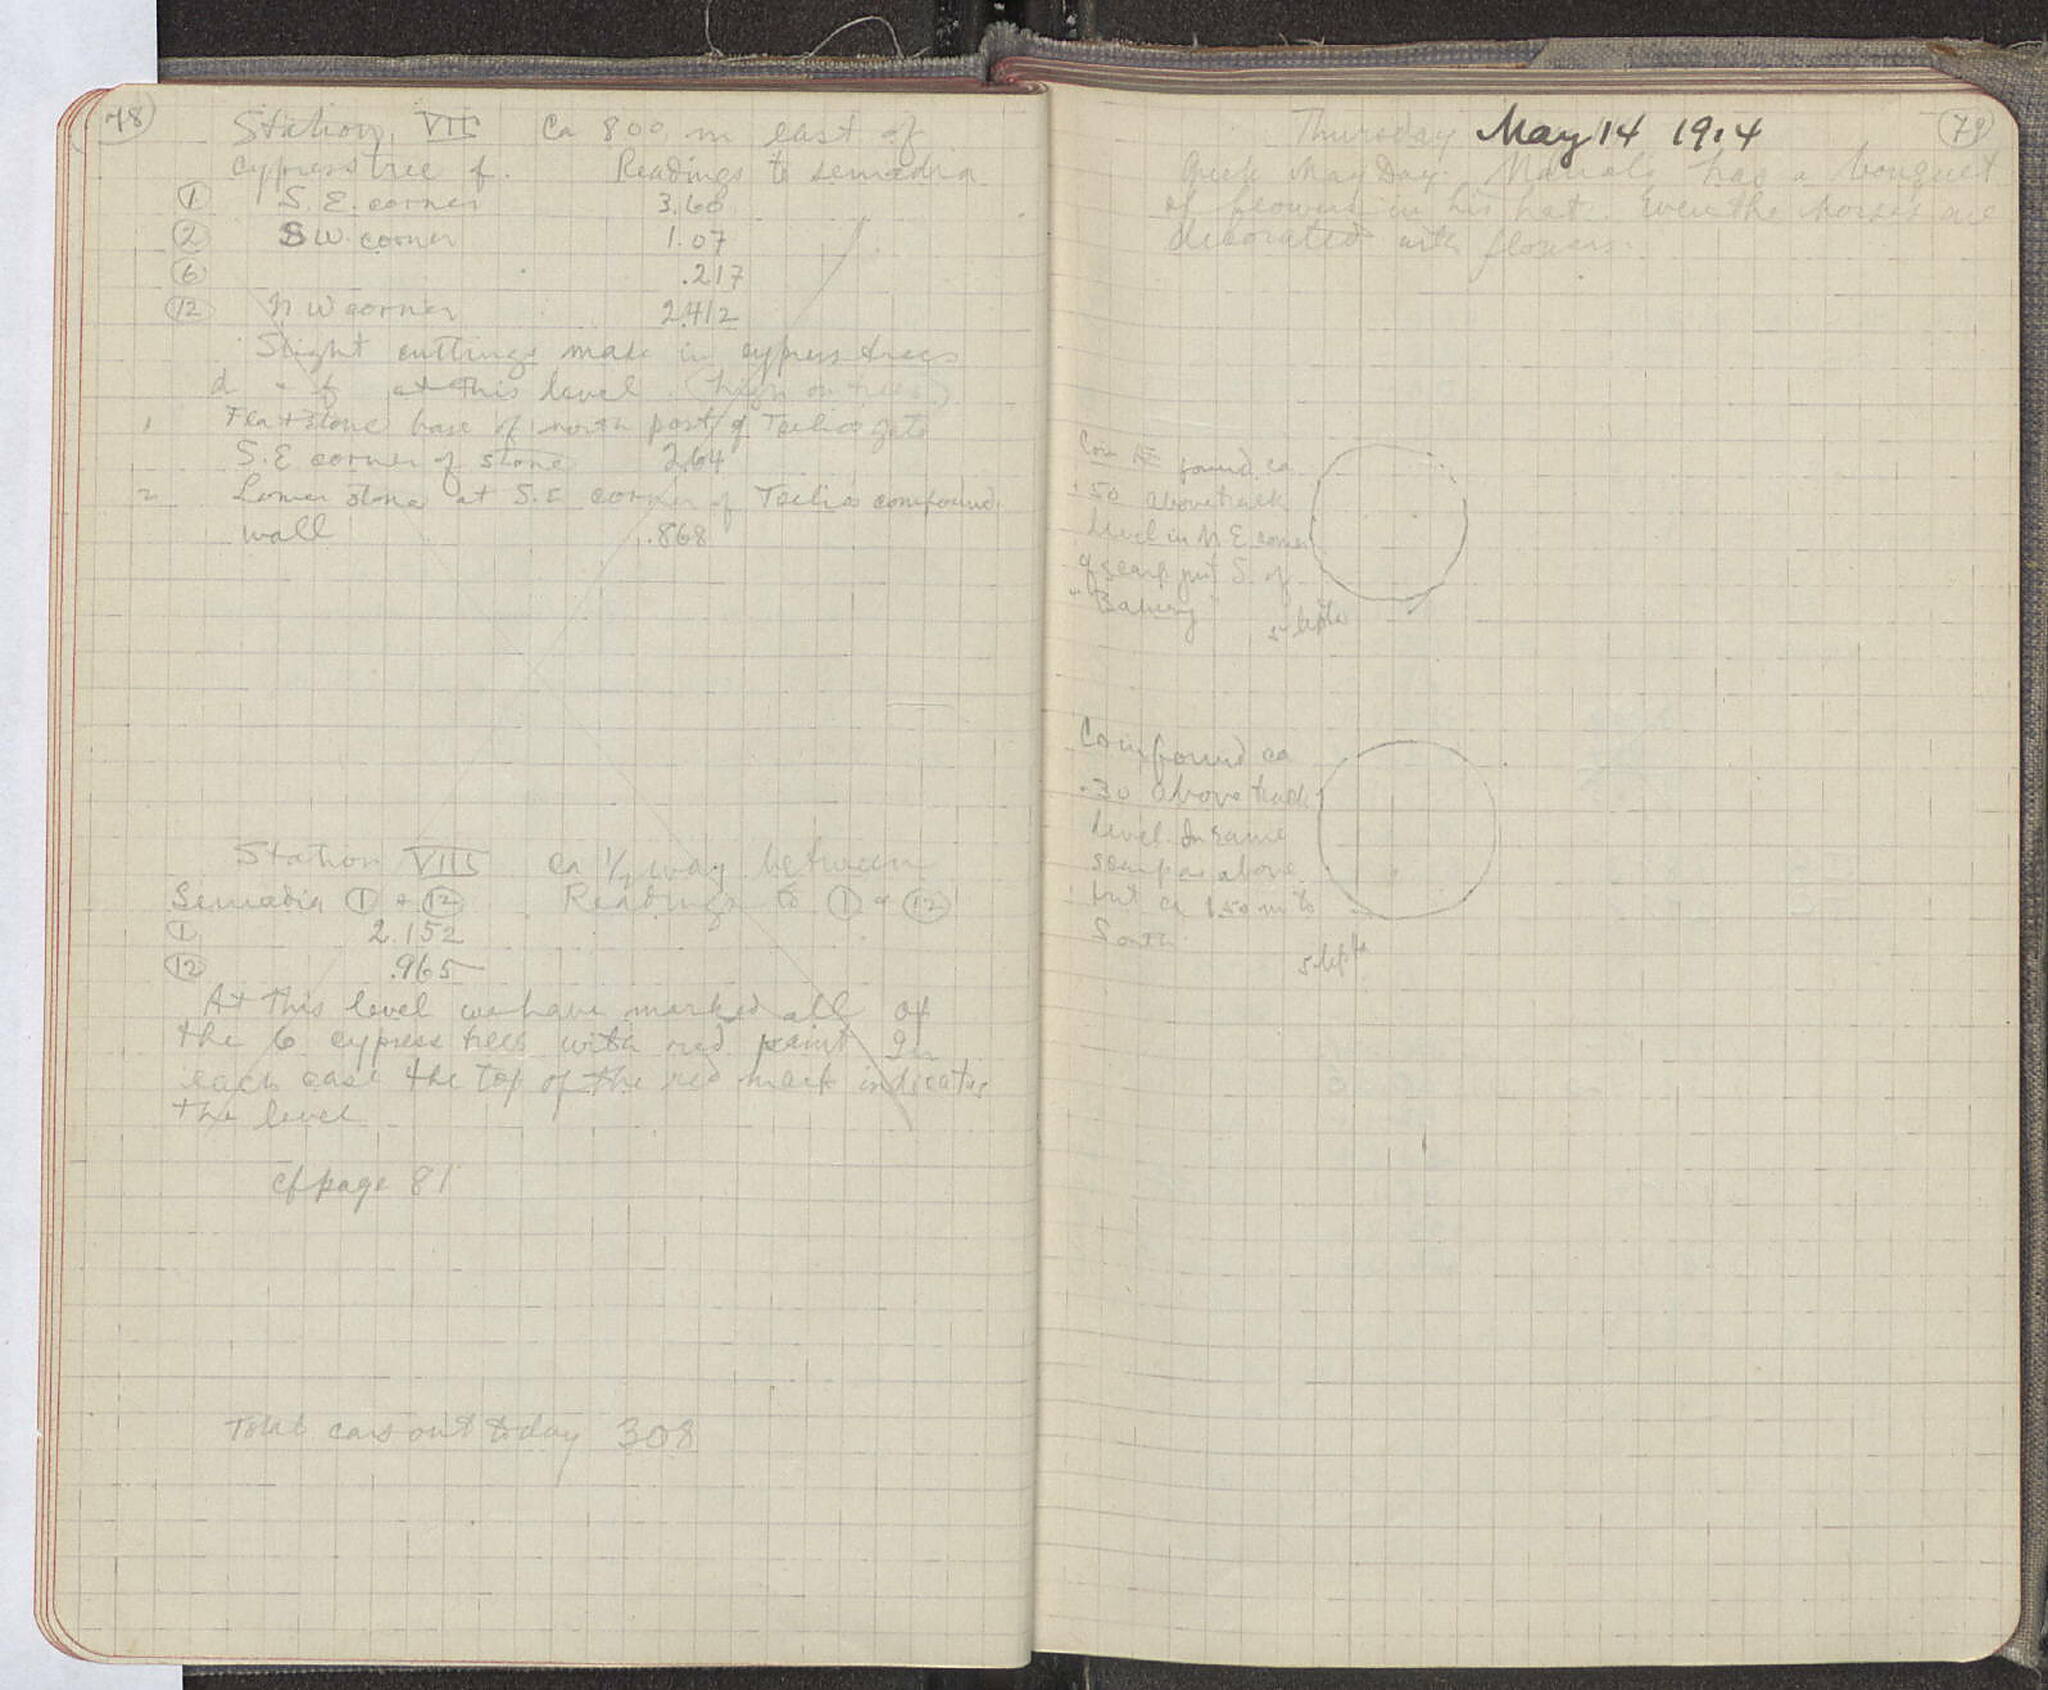 78
Station VII Ca 800 m east of
cypress tree f. Readings to semadia
① S.E. corner 3.60
② SW. corner 1.07
⑥ .217
⑫ N W corner 2.412
Slight cuttings made in cypress trees
d + f at this level (high on trees)
1 Flat stone base of north post of Tselios gate
S.E corner of stone 2.64
2 Lower stone at S.E corner of Tselios compound
wall .868
Station VIII ca 1/2 way between
Semadia ① + ⑫ Readings to ① + ⑫
① 2.152
⑫ .965
At this level we have marked all of
the 6 cypress trees with red paint In
each case the top of the red mark indicates
the level
cf page 81
Total cars out today 308
79
Thursday May 14 1914
Greek May Day. has a bouquet
of flowers in his hat. Even the horses are
decorated with flowers.
Coin Æ found ca
.50 above track
level in N.E. corner
of scarp just S. of
"Bakery"
5 lepta
Coin found ca
.30 above track
level In same
scarp as above
but ca 1.50 m to
South
5 lepta